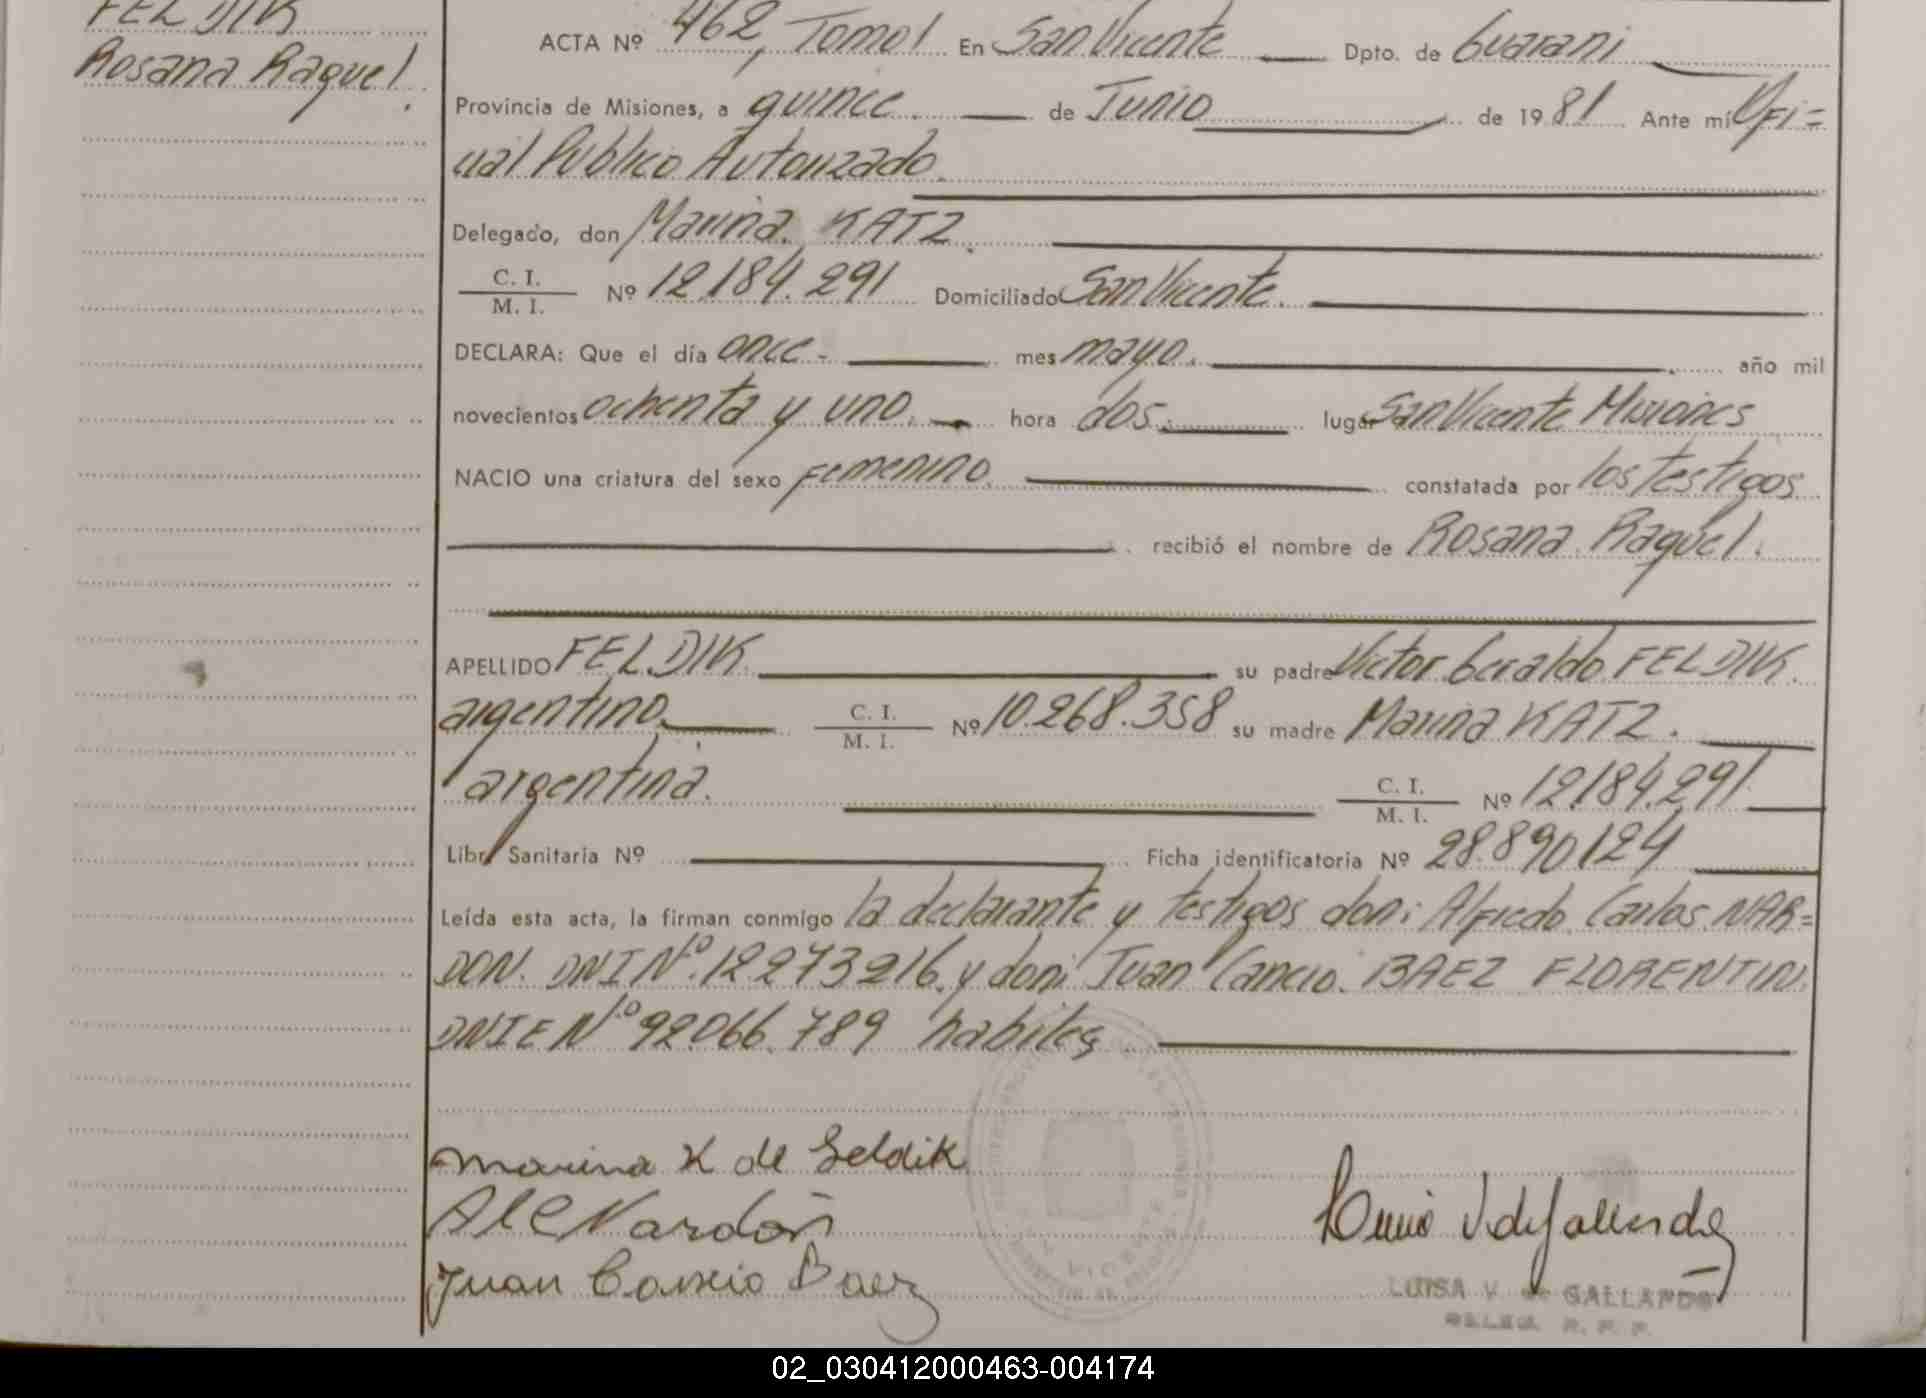 FELDIK
Rosana Raquel.
ACTA Nº 462, Tomo I En San Vicente Dpto. de Guarani
Provincia de Misiones, a quince de Junio de 1981 Ante mí Ofi=
cial Público Autorizado.
Delegado, don Marina KATZ.
C. I.
M. I. Nº 12.184.291 Domiciliado San Vicente.
DECLARA: Que el día once - mes mayo. año mil
novecientos ochenta y uno. hora dos. lugar San Vicente Misiones
NACIO una criatura del sexo femenino. constatada por los testigos
recibió el nombre de Rosana Raquel.
APELLIDO FELDIK. su padre Victor Geraldo FELDIK.
argentino. C. I.
M. I. Nº 10.268.358 su madre Marina KATZ.
argentina. C. I.
M. I. Nº 12.184.291
Libr Sanitaria Nº Ficha identificatoria Nº 28.890.124
Leída esta acta, la firman conmigo la declarante y testigos don: Alfredo Carlos NAR=
DON. DNI Nº 12273216. y don: Juan Cancio. BAEZ FLORENTIN.
DNIE Nº 92.066.789 habiles
Marina K de Feldik
Al C Nardón
Juan Cancio Baez
VICENTE
LUISA V. de GALLARDO
DELEG. R. P. P.
02_030412000463-004174